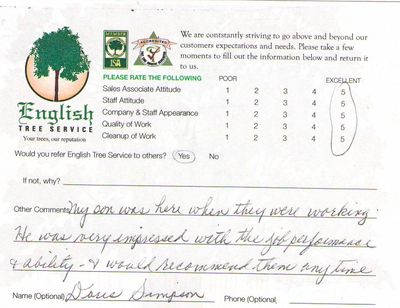 MEMBER
ISA
ACCREDITED
We are contstantly striving to go above and beyond our
customers expectations and needs. Please take a few
moments to fill out the information below and return it
to us.
PLEASE RATE THE FOLLOWING POOR EXCELLENT
Sales Associate Attitude 1 2 3 4 5
Staff Attitude 1 2 3 4 5
Company & Staff Appearance 1 2 3 4 5
Quality of Work 1 2 3 4 5
Cleanup of Work 1 2 3 4 5
English
TREE SERVICE
Your trees, our reputation
Would you refer English Tree Service to others? Yes No
If not, why?
Other Comments My son was here when they were working.
He was very impressed with the job performance
& ability - & would recommend them any time
Name (Optional) Doris Simpson Phone (Optional)